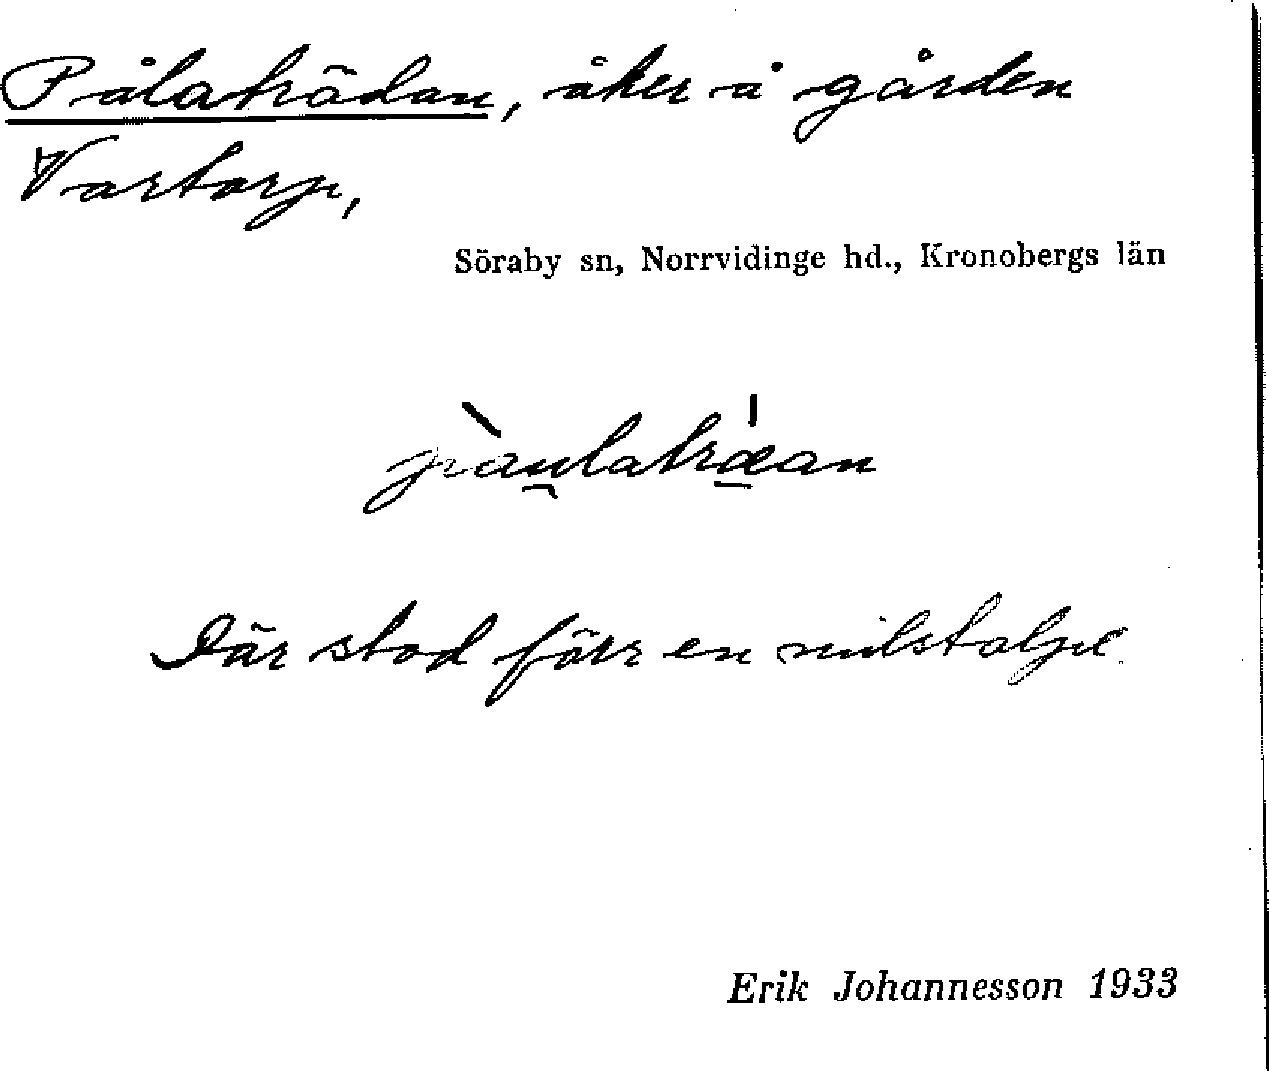 Pålaträdan, åker å gården
Vartorp,
Söraby sn, Norrvidinge hd., Kronobergs län
pàu̯latrǽan
Där stod förr en milstolpe.
Erik Johannesson 1933